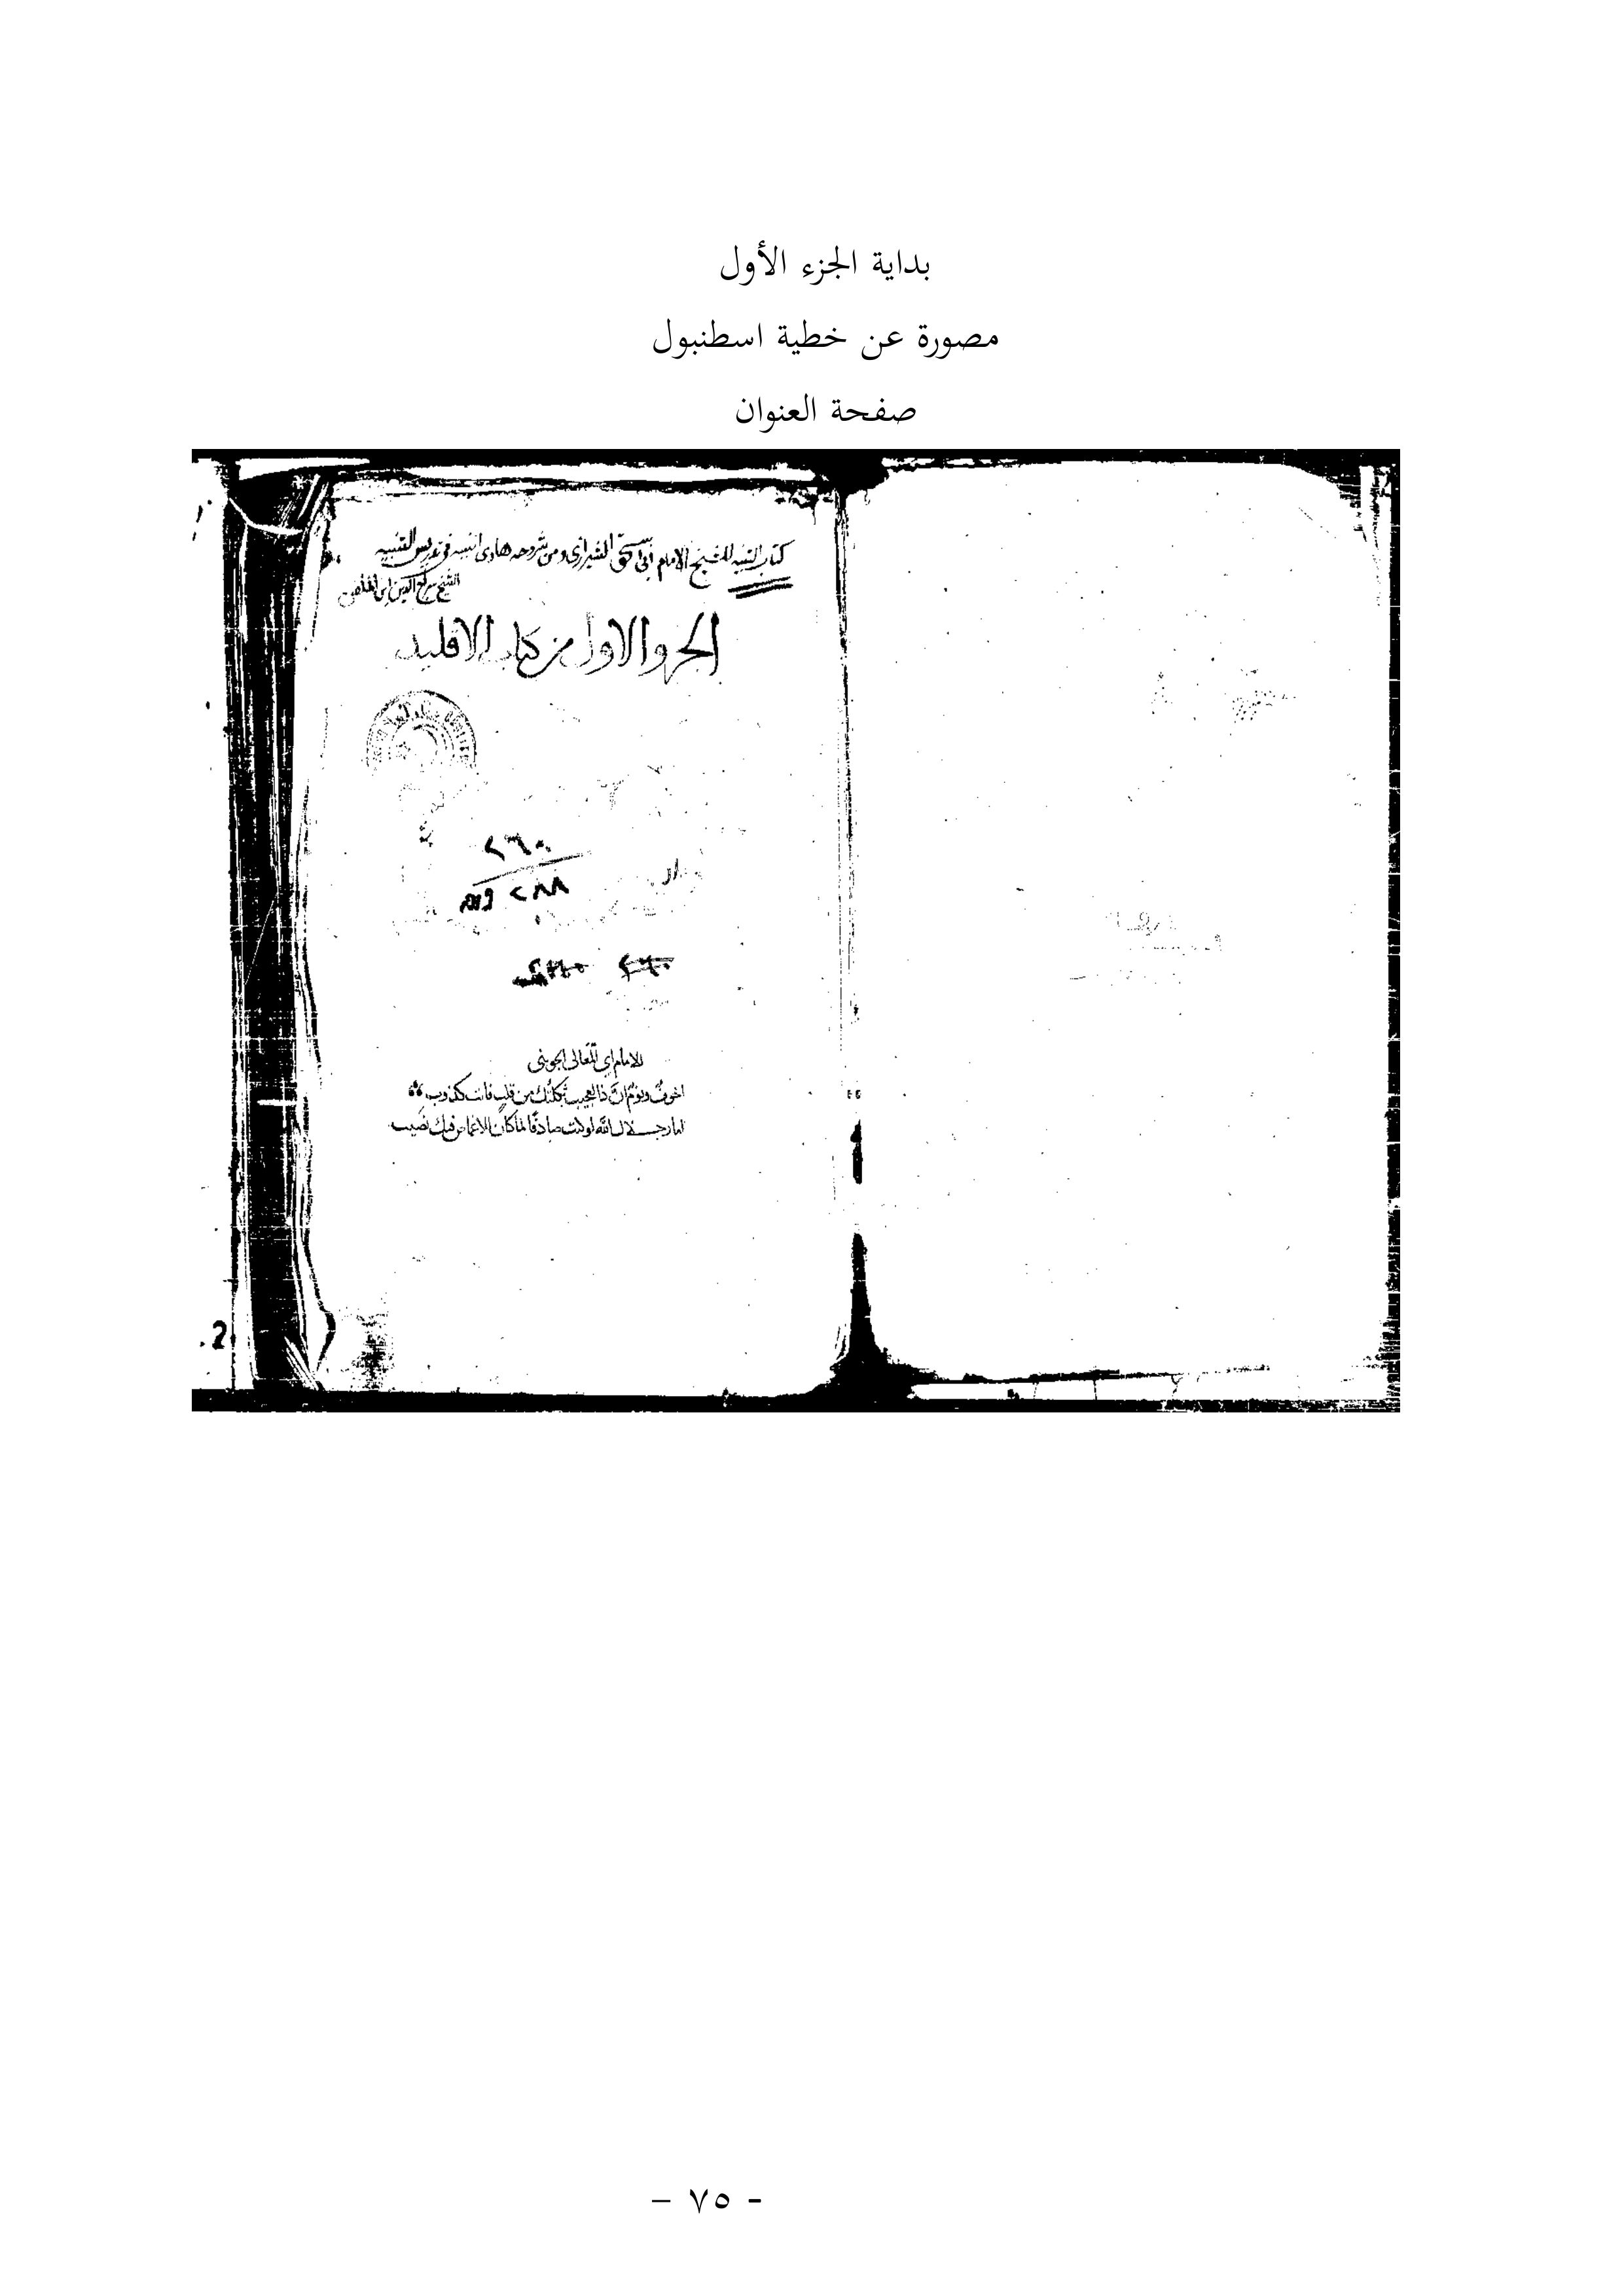 بداية الجزء الأول
مصورة عن خطية اسطنبول
صفحة العنوان
كتاب التنبيه للشيخ الامام أبي اسحق الشيرازي ومن شروحه هادي النبيه في تدريس التنبيه
الشيخ سراج الدين ابن الملقن
الجزو الاول من كتاب الاقليد
٢٦٠
٢٨٨ ورم
٢٦٠
للامام أبي المعالي الجويني
اخوف ونوم ان ذا لعجيب ثكلتك من قلب فانت كذوب
اما وجلال الله لو كنت صادقا لما كان للاغماض فيك نصيب
2
- ٧٥ -